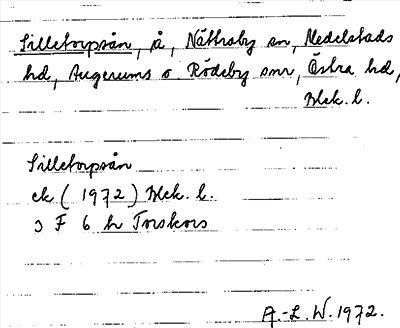 Silletorpsån, å, Nättraby sn, Medelstads
hd, Augerums o Rödeby snr, Östra hd,
Blek. l.
Silletorpsån
ek (1972) Blek. l.
3 F 6 h Torskors
A.-L. W. 1972.